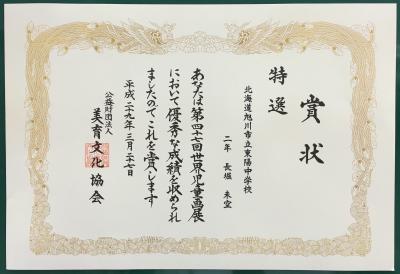 賞状
特選
北海道旭川市立東陽中学校
二年 長堀 来空
あなたは第四十七回世界児童画展
において優秀な成績を収められ
ましたのでこれを賞します
平成二十九年三月二十七日
公益財団法人
美育文化協会